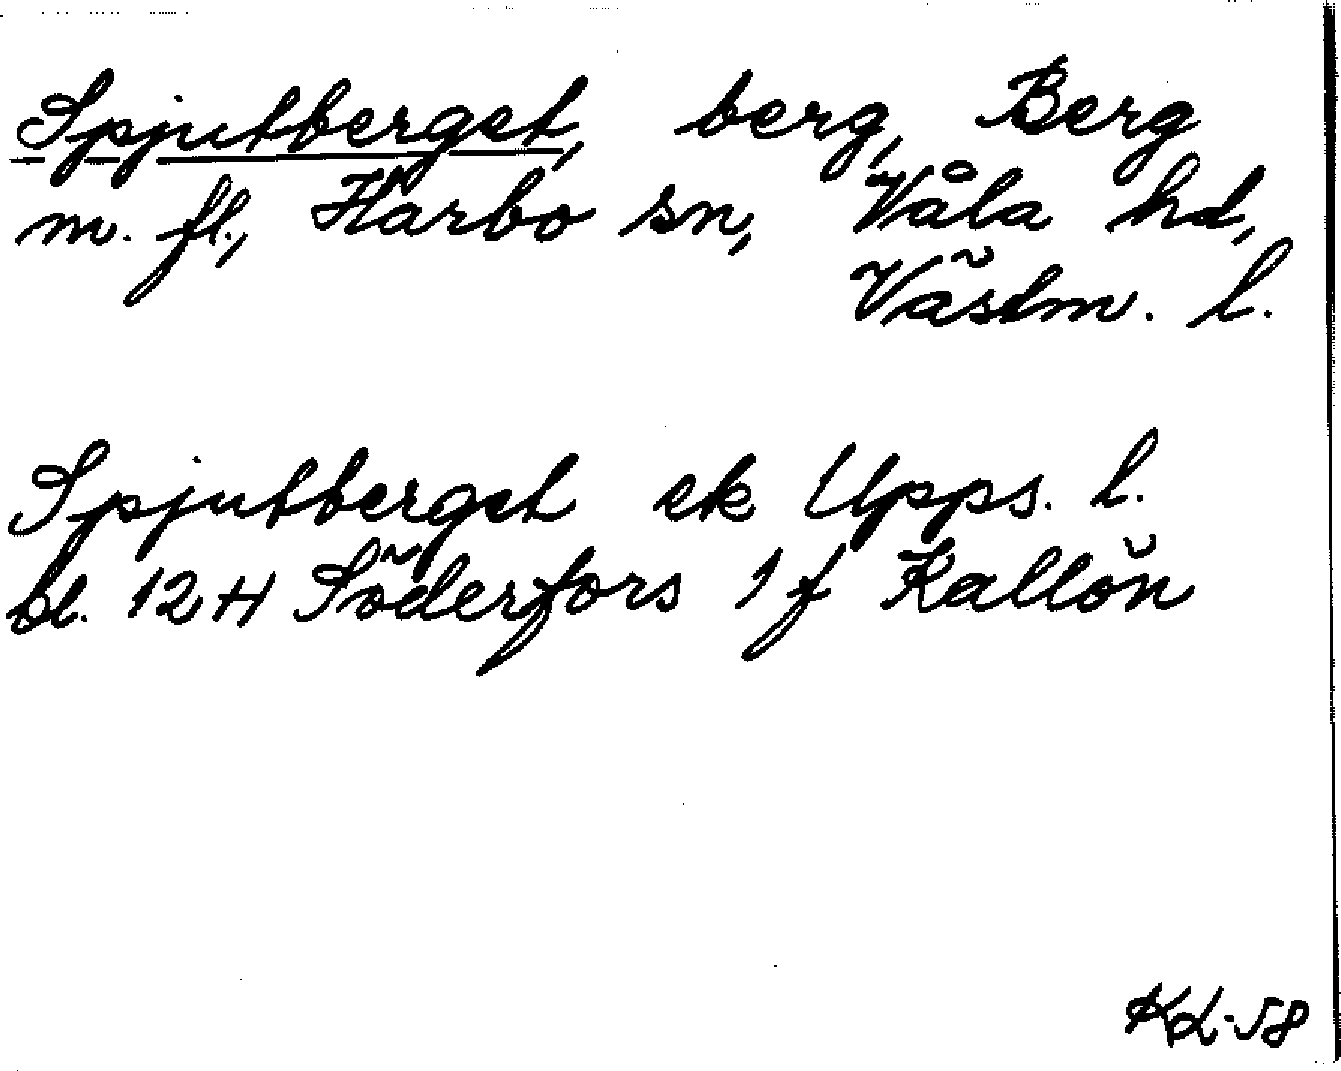 Spjutberget, berg, Berg
m. fl., Härbo sn, Våla hd,
Västm. l.
Spjutberget ek Upps. l.
bl. 12 H Söderfors 1 f Kallön
KL-58